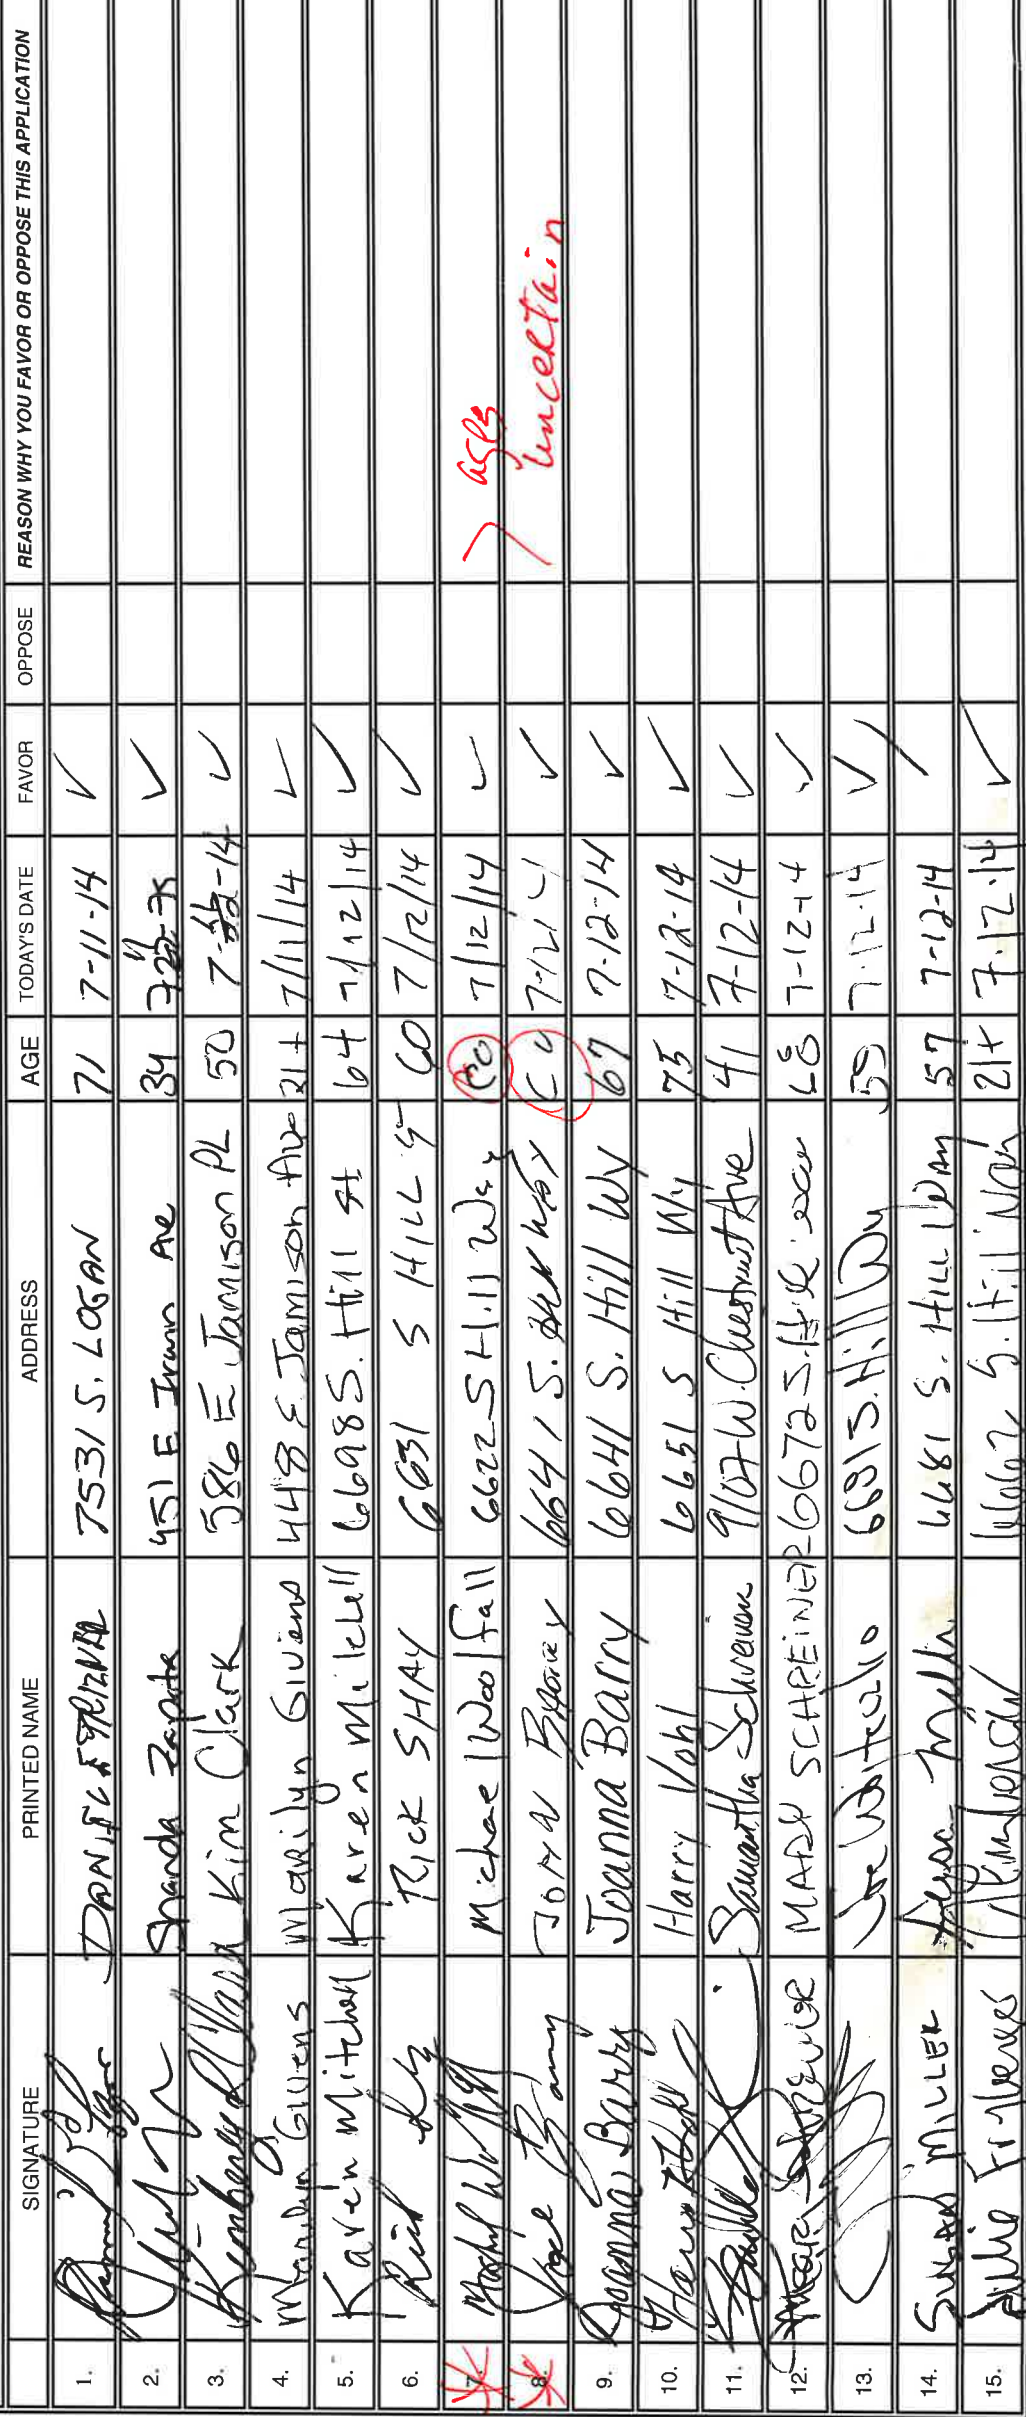 SIGNATURE PRINTED NAME ADDRESS AGE TODAY'S DATE FAVOR OPPOSE REASON WHY YOU FAVOR OR OPPOSE THIS APPLICATION
1. 7531 S. LOGAN 71 7-11-14 ✓
2. Shanda Zapata 451 E Irwin Ave 34 ✓
3. Kimberly Kim Clark 586 E Jamison PL 50 ✓
4. Marilyn Givens Marilyn Givens 448 E. Jamison Ave 21+ 7/11/14 ✓
5. Karen Mitchell Karen Mitchell 6698 S. Hill St 64 7/12/14 ✓
6. Rick Rick SHAY 6631 S HILL St 60 7/12/14 ✓
7. Michael Woolfall 6622 S Hill Way 60 7/12/14 ✓ > ages
8. Barry JOHN 6641 S. WAY ✓ uncertain
9. Joanna Barry Joanna Barry 6641 S. Hill Wy 67 7-12-14 ✓
10. Harry Vohl 6651 S Hill Wy 75 7-12-14 ✓
11. Samantha 9107 W. Chestnut Ave 41 7-12-14 ✓
12. MARY SCHREINER 6672 S. 68 7-12-14 ✓
13. 6681 S. Hill Wy 59 7-12-14 ✓
14. MILLER 6681 S. HILL WAY 57 7-12-14
15. Julie S. Hill Way 21+ 7-12-14 ✓